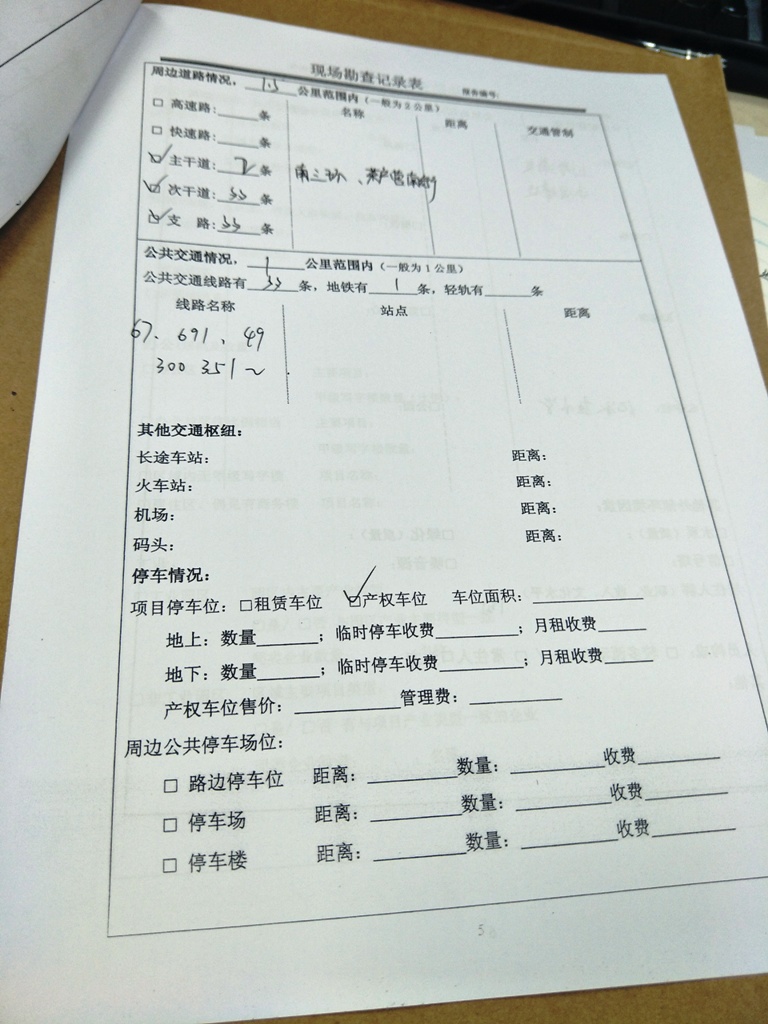 现场勘查记录表
报告编号:
周边道路情况, 1.5 公里范围内(一般为2公里)
名称 距离 交通管制
□ 高速路:______条
□ 快速路:______条
☑ 主干道: 2 条 南三环、
☑ 次干道: 33 条
☑ 支 路: 33 条
公共交通情况, 1 公里范围内(一般为1公里)
公共交通线路有 33 条, 地铁有 1 条, 轻轨有______条
线路名称 站点 距离
67、691、49
300 351~
其他交通枢纽:
长途车站: 距离:
火车站: 距离:
机场: 距离:
码头: 距离:
停车情况:
项目停车位: □租赁车位 ☑产权车位 车位面积: ____________
地上: 数量______; 临时停车收费________; 月租收费_____
地下: 数量______; 临时停车收费________; 月租收费_____
产权车位售价: ____________管理费: __________
周边公共停车场位:
□ 路边停车位 距离: _________数量: _________收费________
□ 停车场 距离: _________数量: _________收费________
□ 停车楼 距离: _________数量: _________收费________
5